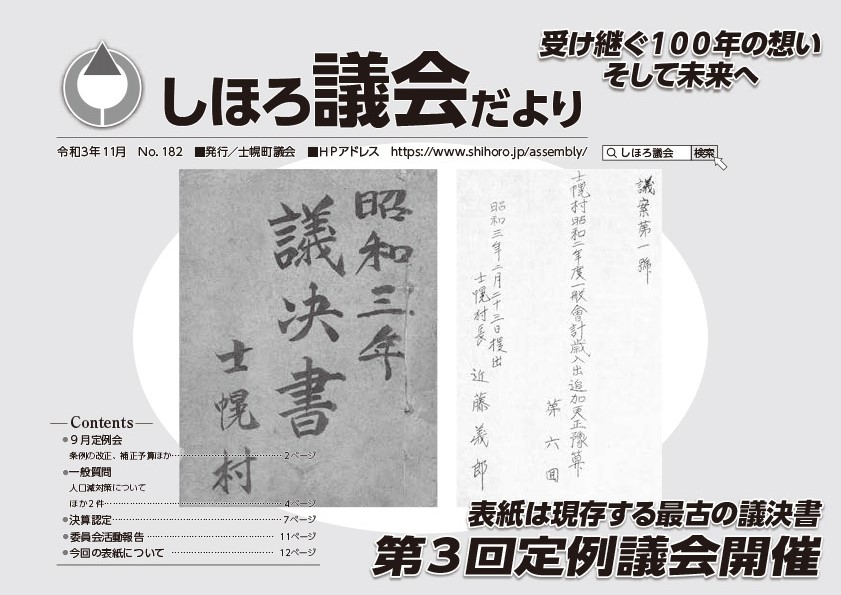 受け継ぐ100年の想い
そして未来へ
しほろ議会だより
令和3年11月 No.182 ■発行／士幌町議会 ■HPアドレス https://www.shihoro.jp/assembly/
しほろ議会 検索
昭和三年
議决書
士幌村
議案第一號
士幌村昭和二年度一般會計歳入出追加更正豫算
第六回
昭和三年二月二十三日提出
士幌村長 近藤義郎
Contents
●9月定例会
条例の改正、補正予算ほか……2ページ
●一般質問
人口減対策について
ほか2件……4ページ
●決算認定……7ページ
●委員会活動報告……11ページ
●今回の表紙について……12ページ
表紙は現存する最古の議決書
第3回定例議会開催